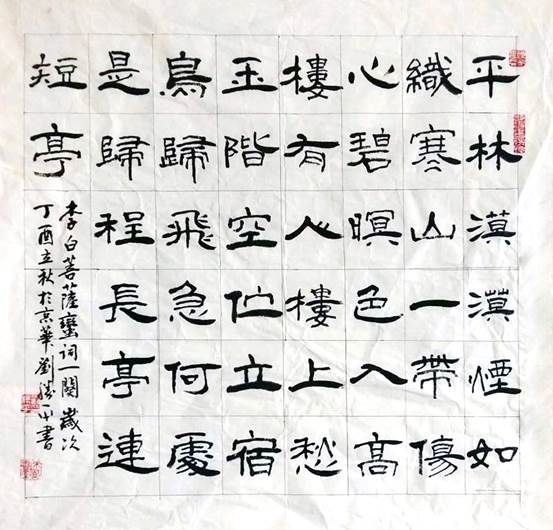 平林漠漠煙如
織寒山一帶傷
心碧暝色入高
樓有人樓上愁
玉階空伫立宿
鳥歸飛急何處
是歸程長亭連
短亭
李白菩薩蠻詞一闋歲次
丁酉立秋於京華劉勝書